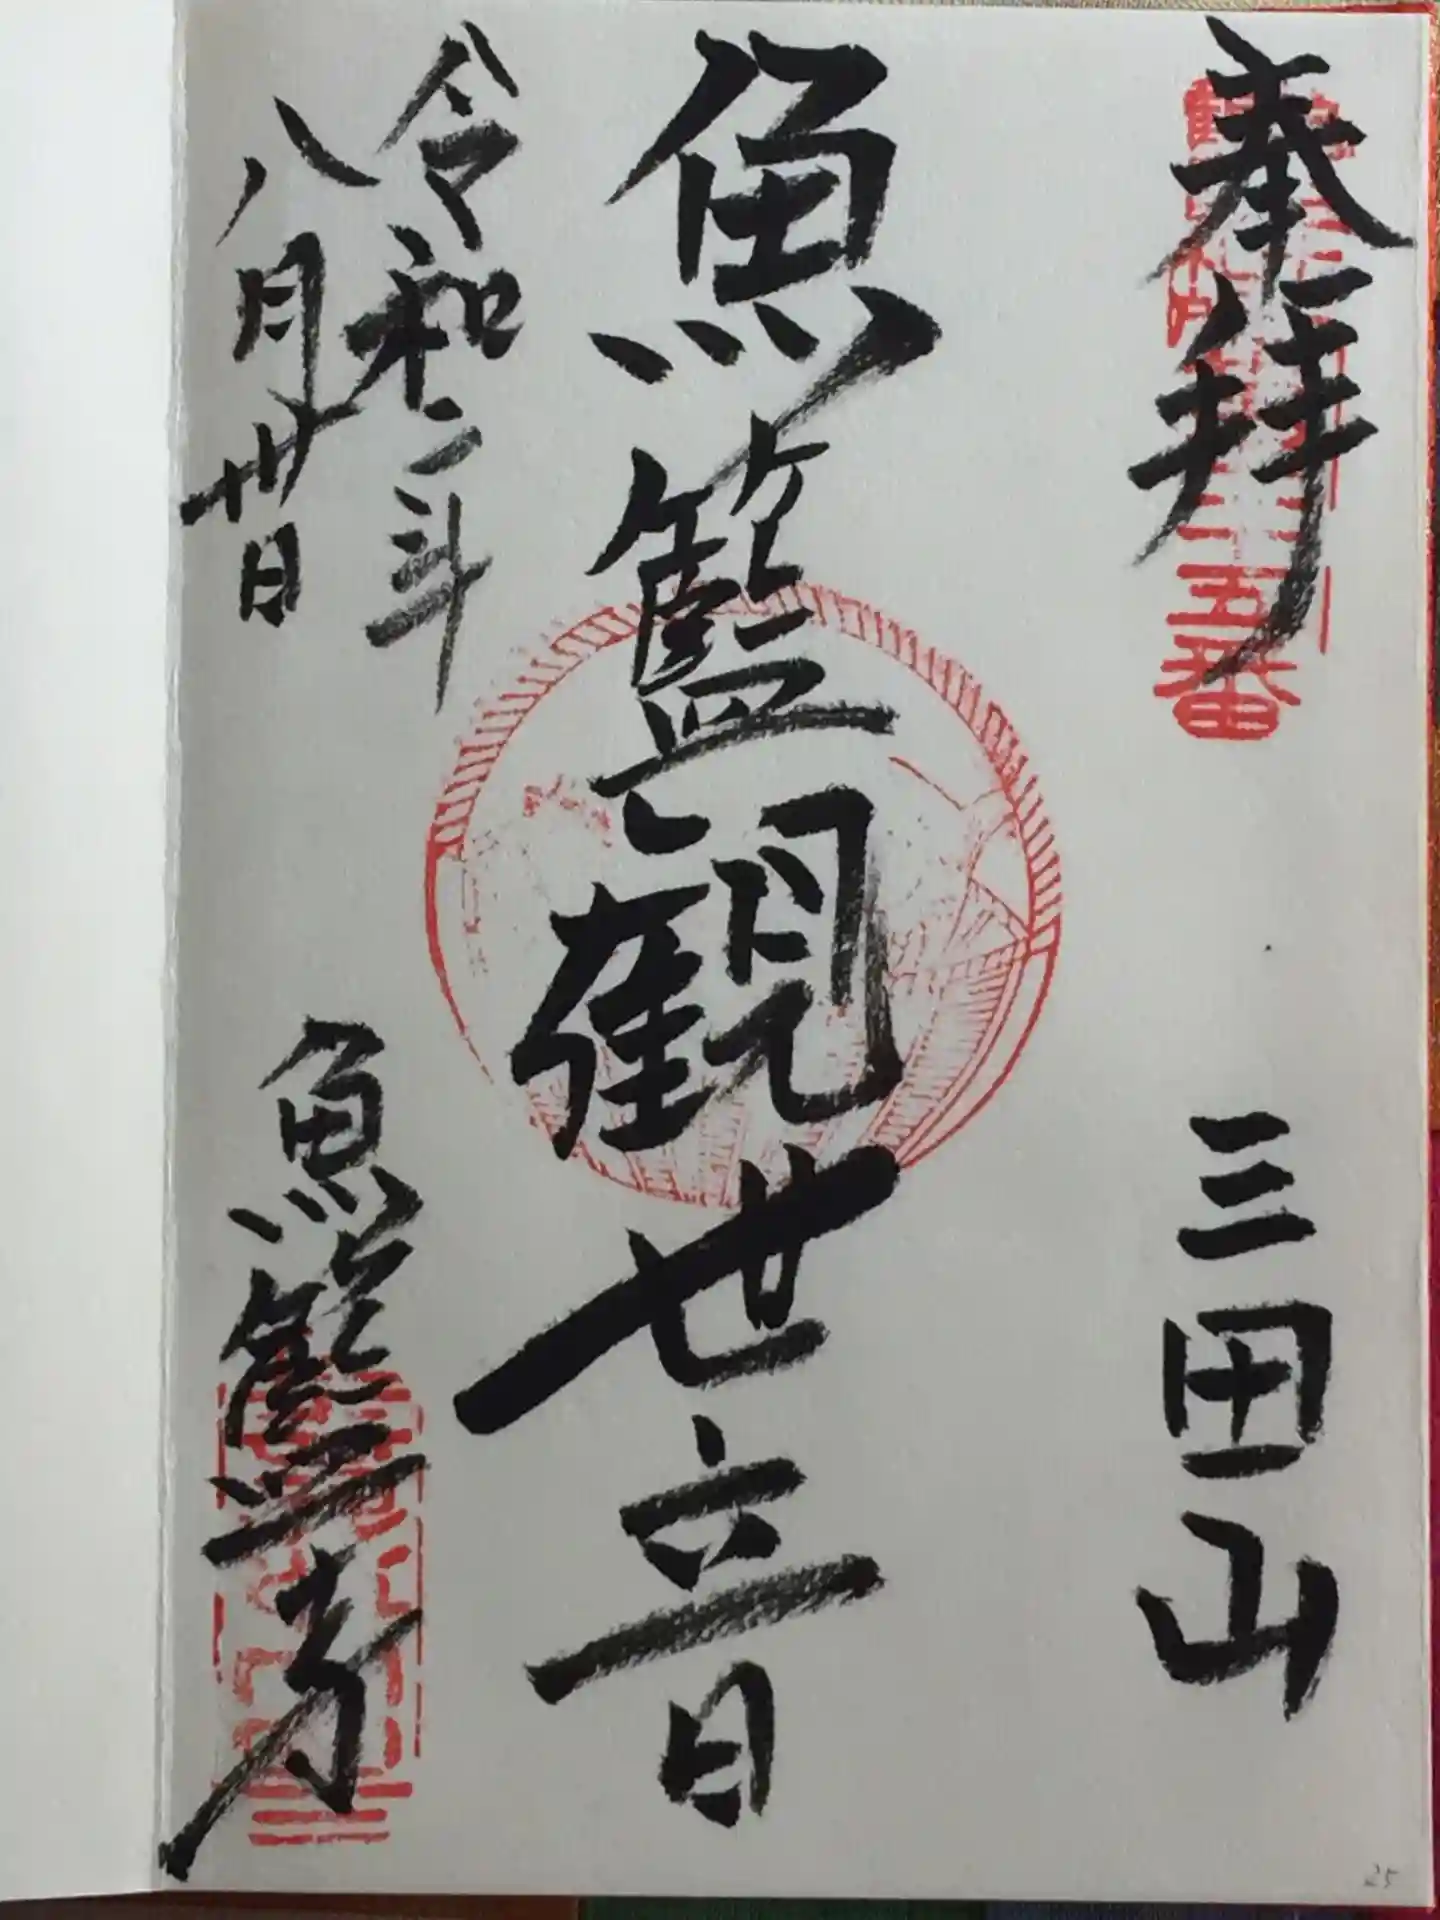 奉拝
三田山
魚籃觀世音
令和二年
八月卅日
魚籃寺
二十五番
25